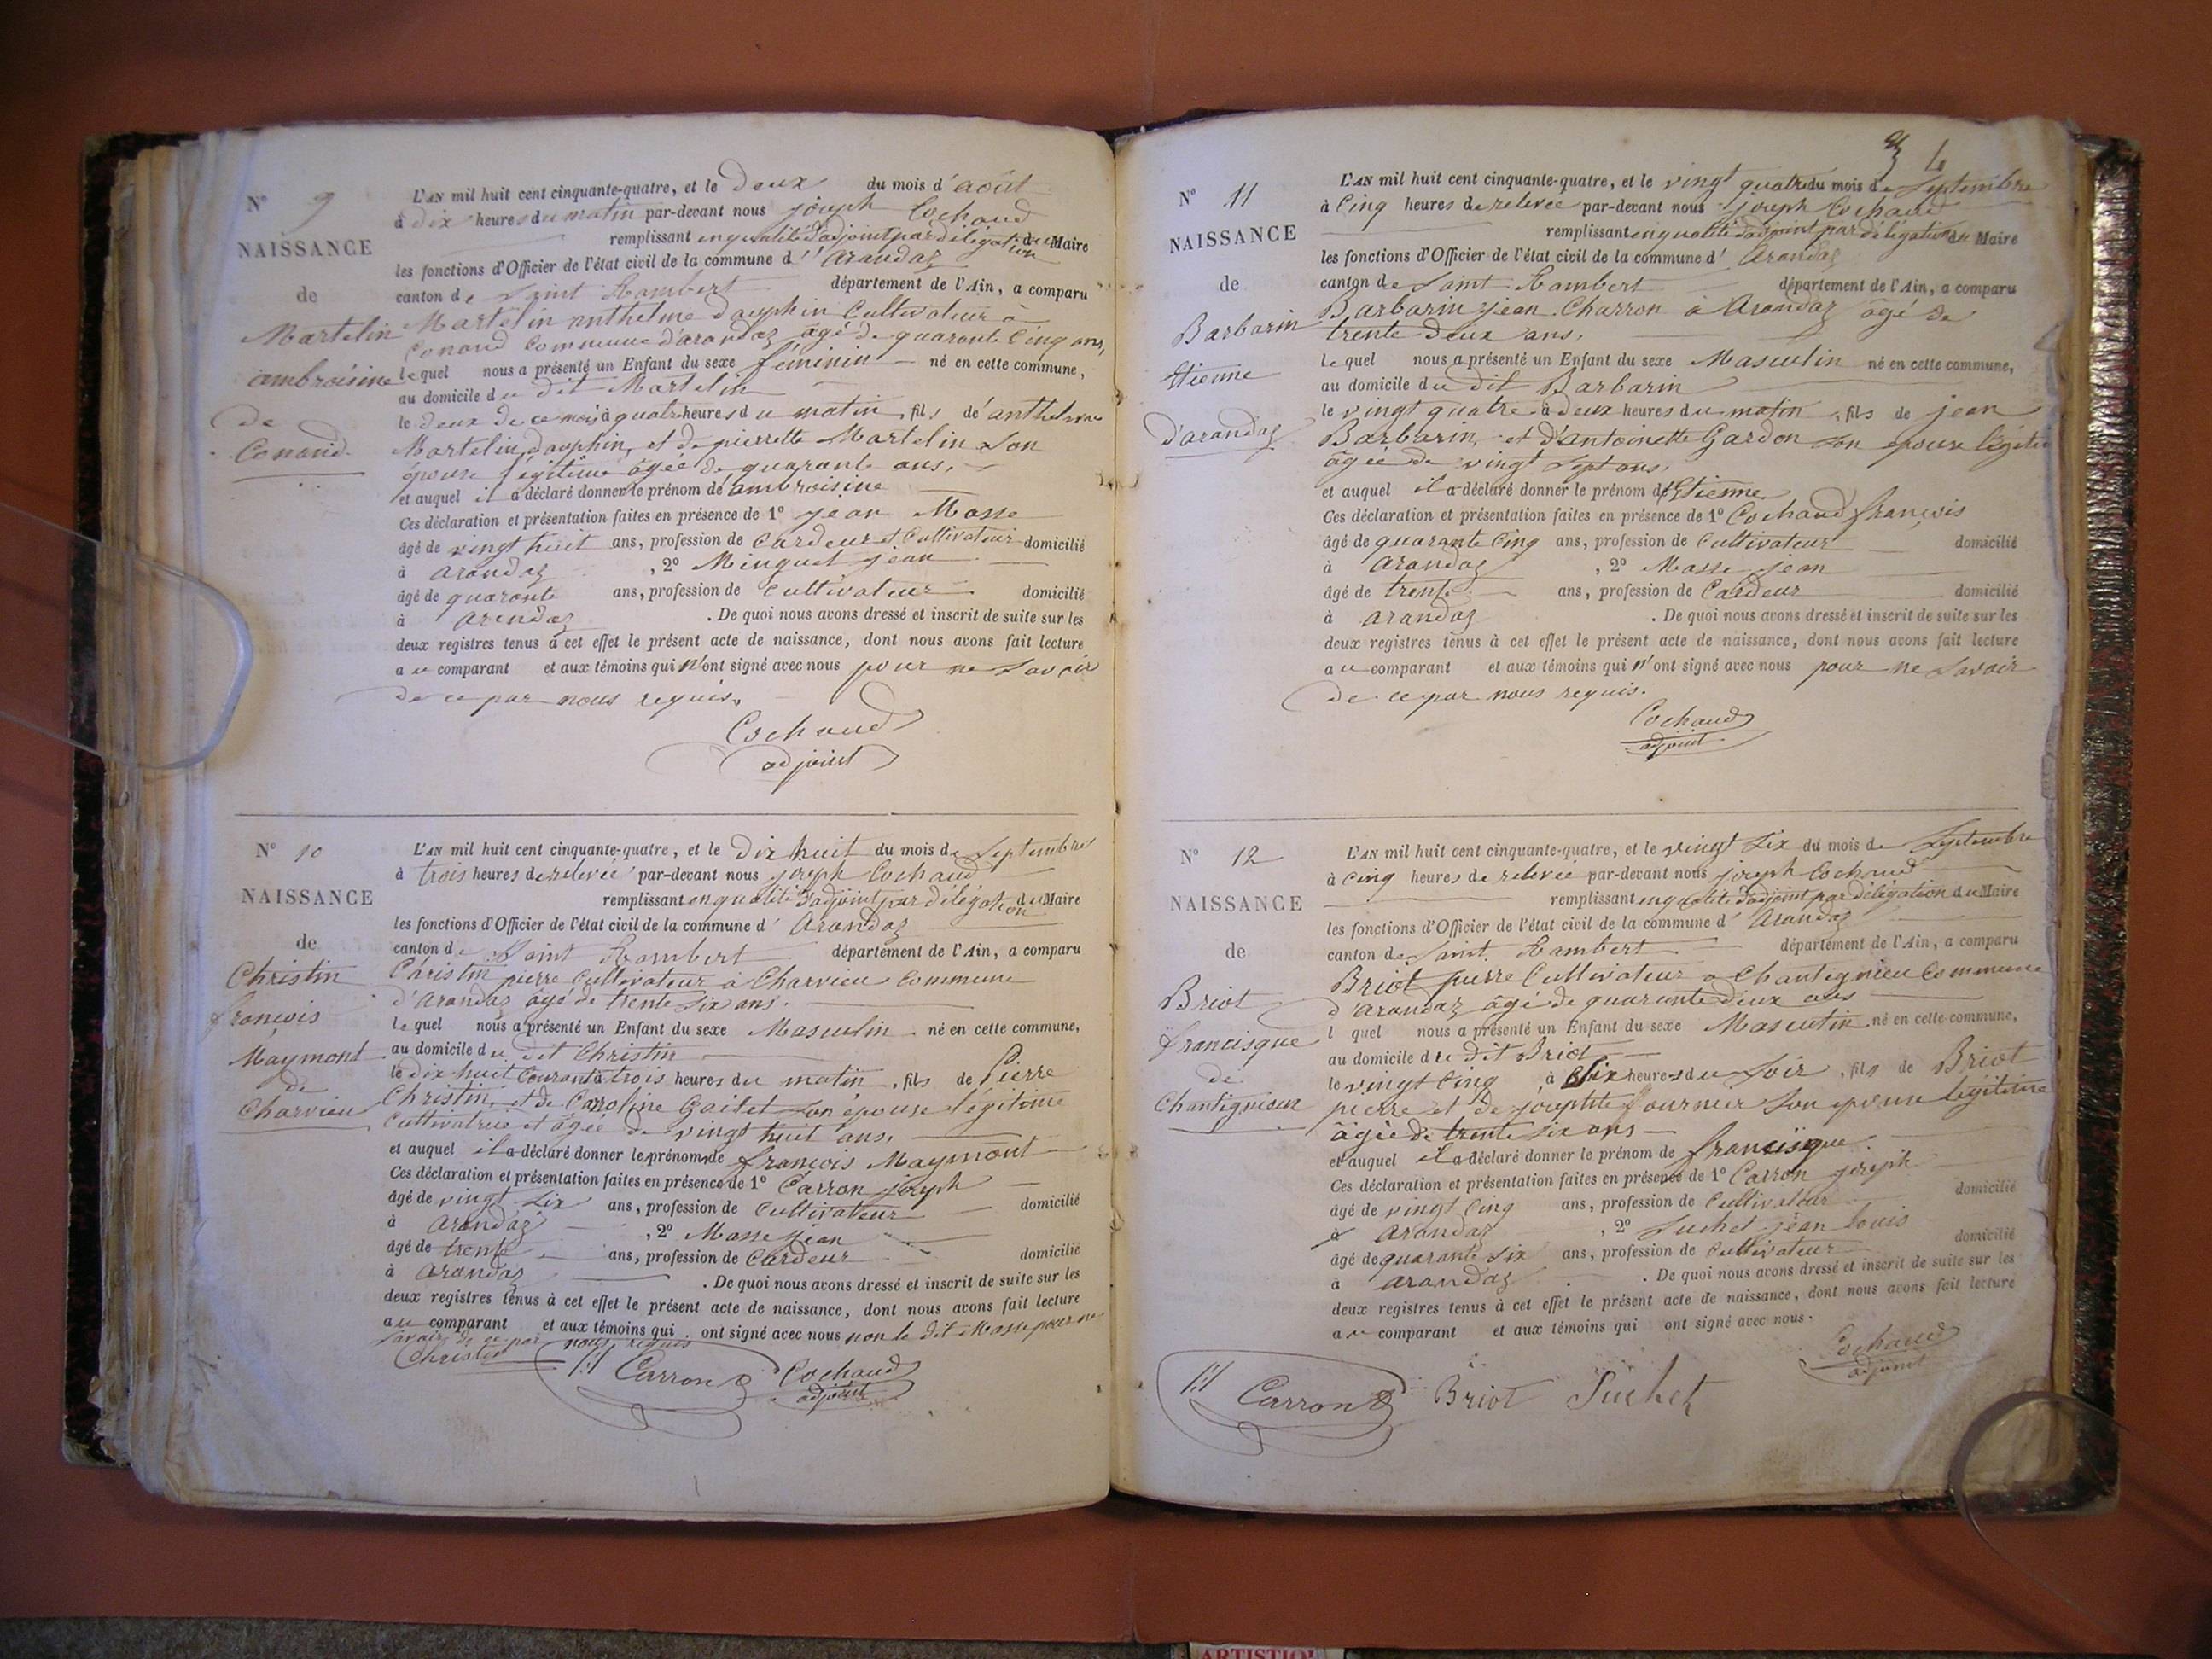 N° 9
NAISSANCE
de
Martelin
ambroisine
de
Conand
L'AN mil huit cent cinquante-quatre, et le Deux du mois d'août
à dix heures du matin par-devant nous joseph Cochaud
remplissant en qualité d'adjoint par délégation du Maire
les fonctions d'Officier de l'état civil de la commune d' Arandaz
canton de Saint Rambert département de l'Ain, a comparu
Martelin anthelme dauphin Cultivateur à
Conand Commune d'arandaz âgé de quarante Cinq ans,
lequel nous a présenté un Enfant du sexe féminin né en cette commune,
au domicile du dit Martelin
le deux de ce mois à quatre heures du matin, fils de anthelme
Martelin, dauphin, et de pierrette Martelin Son
épouse légitime âgée de quarante ans,
et auquel il a déclaré donner le prénom de ambroisine
Ces déclaration et présentation faites en présence de 1° jean Masse
âgé de vingt huit ans, profession de Cardeur et Cultivateur domicilié
à arandaz , 2° Minguet jean
âgé de quarante ans, profession de Cultivateur domicilié
à arandaz . De quoi nous avons dressé et inscrit de suite sur les
deux registres tenus à cet effet le présent acte de naissance, dont nous avons fait lecture
au comparant et aux témoins qui n'ont signé avec nous pour ne Savoir
de ce par nous requis.
Cochaud
adjoint
N° 10
NAISSANCE
de
Christin
françois
Maymont
de
Charvieu
L'AN mil huit cent cinquante-quatre, et le Dix huit du mois de Septembre
à trois heures de relevée par-devant nous joseph Cochaud
remplissant en qualité d'adjoint par délégation du Maire
les fonctions d'Officier de l'état civil de la commune d' Arandaz
canton de Saint Rambert département de l'Ain, a comparu
Christin pierre Cultivateur à Charvieu Commune
d'Arandaz âgé de trente Six ans.
lequel nous a présenté un Enfant du sexe Masculin né en cette commune,
au domicile du dit Christin
le dix huit Courant à trois heures du matin, fils de Pierre
Christin, et de Caroline Gaitet Son épouse légitime
Cultivatrice et âgée de vingt huit ans,
et auquel il a déclaré donner les prénoms de françois Maymont
Ces déclaration et présentation faites en présence de 1° Carron joseph
âgé de vingt Six ans, profession de Cultivateur domicilié
à Arandaz , 2° Masse jean
âgé de trente ans, profession de Cardeur domicilié
à Arandaz . De quoi nous avons dressé et inscrit de suite sur les
deux registres tenus à cet effet le présent acte de naissance, dont nous avons fait lecture
au comparant et aux témoins qui ont signé avec nous non le dit Masse pour ne
savoir de ce par nous requis
Christin Carron Cochaud
adjoint
4
N° 11
NAISSANCE
de
Barbarin
Etienne
d'arandaz
L'AN mil huit cent cinquante-quatre, et le vingt quatre du mois de Septembre
à Cinq heures de relevée par-devant nous joseph Cochaud
remplissant en qualité d'adjoint par délégation du Maire
les fonctions d'Officier de l'état civil de la commune d' Arandaz
canton de Saint Rambert département de l'Ain, a comparu
Barbarin jean Charron à Arandaz âgé de
trente deux ans,
lequel nous a présenté un Enfant du sexe Masculin né en cette commune,
au domicile du dit Barbarin
le vingt quatre à deux heures du matin, fils de jean
Barbarin, et d'Antoinette Gardon Son épouse légitime
âgée de vingt Sept ans,
et auquel il a déclaré donner le prénom d'Etienne
Ces déclaration et présentation faites en présence de 1° Cochaud françois
âgé de quarante Cinq ans, profession de Cultivateur domicilié
à Arandaz , 2° Masse jean
âgé de trente ans, profession de Cardeur domicilié
à arandaz . De quoi nous avons dressé et inscrit de suite sur les
deux registres tenus à cet effet le présent acte de naissance, dont nous avons fait lecture
au comparant et aux témoins qui n'ont signé avec nous pour ne Savoir
de ce par nous requis.
Cochaud
adjoint
N° 12
NAISSANCE
de
Briot
francisque
de
Chantignieu
L'AN mil huit cent cinquante-quatre, et le vingt Six du mois de Septembre
à Cinq heures de relevée par-devant nous joseph Cochaud
remplissant en qualité d'adjoint par délégation du Maire
les fonctions d'Officier de l'état civil de la commune d' Arandaz
canton de Saint Rambert département de l'Ain, a comparu
Briot pierre Cultivateur à Chantignieu Commune
d'Arandaz âgé de quarante deux ans
l quel nous a présenté un Enfant du sexe Masculin né en cette commune,
au domicile du dit Briot
le vingt Cinq à Six heures du Soir, fils de Briot
pierre et de josephte fournier Son épouse légitime
âgée de trente Six ans
et auquel il a déclaré donner le prénom de francisque
Ces déclaration et présentation faites en présence de 1° Carron joseph
âgé de vingt Cinq ans, profession de Cultivateur domicilié
à Arandaz , 2° Suchet jean Louis
âgé de quarante Six ans, profession de Cultivateur domicilié
à arandaz . De quoi nous avons dressé et inscrit de suite sur les
deux registres tenus à cet effet le présent acte de naissance, dont nous avons fait lecture
au comparant et aux témoins qui ont signé avec nous.
Cochaud
adjoint
Carron Briot Suchet